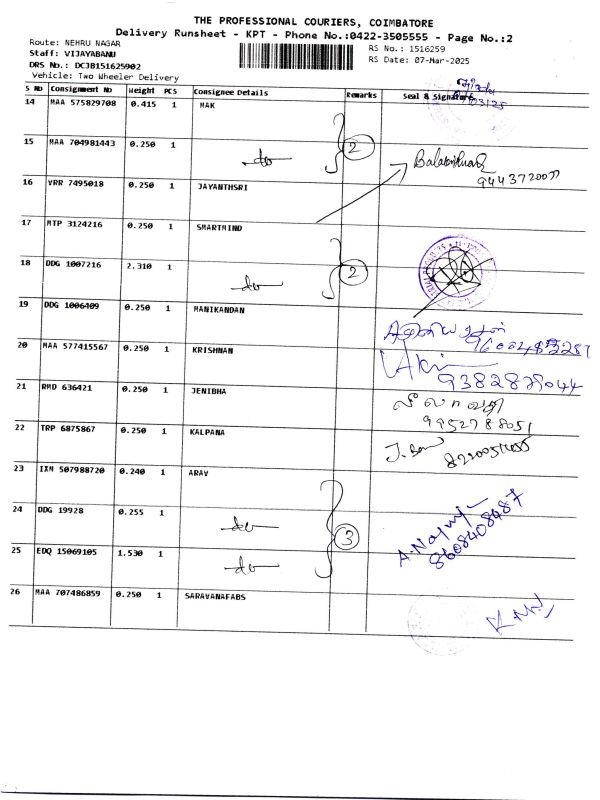 THE PROFESSIONAL COURIERS, COIMBATORE
Delivery Runsheet - KPT - Phone No.:0422-3505555 - Page No.:2
Route: NEHRU NAGAR
Staff: VIJAYABANU
DRS No.: DCJB151625902
Vehicle: Two Wheeler Delivery
RS No.: 1516259
RS Date: 07-Mar-2025
S No Consignment No Weight PCS Consignee Details Remarks Seal & Signature
14 MAA 575829708 0.415 1 MAK
15 MAA 704981443 0.250 1 do 2
16 VRR 7495018 0.250 1 JAYANTHSRI 9443720077
17 MTP 3124216 0.250 1 SMARTMIND
18 DDG 1007216 2.310 1 do 2
19 DDG 1006409 0.250 1 MANIKANDAN
20 MAA 577415567 0.250 1 KRISHNAN 9382879044
21 RMD 636421 0.250 1 JENIBHA லீலாவதி 9952788051
22 TRP 6875867 0.250 1 KALPANA
23 IXM 507988720 0.240 1 ARAV
24 DDG 19928 0.255 1 do 3
25 EDQ 15069105 1.530 1 do 8608408487
26 MAA 707486859 0.250 1 SARAVANAFABS